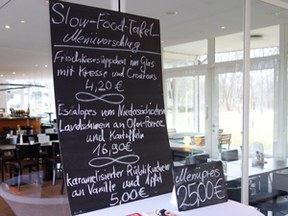 Slow-Food Tafel
Menüvorschlag
Frischkäsesüppchen im Glas
mit Kresse und Croutons
4,20 €
Escalopes vom Niedersächsischen
Landschwein an
und Kartoffeln
16,30 €
karamelisierter
an Vanille und Apfel
5,00 €
Menüpreis
25,00 €